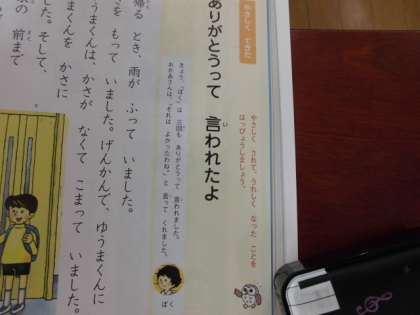 やさしく できた
ありがとうって 言われたよ
やさしく されて、うれしく なった ことを
はっぴょうしましょう。
きょう、「ぼく」は 三回も ありがとうって 言われました。
おかあさんは、「それは よかったわね。」と 言って くれました。
ぼく
帰る とき、雨が ふって いました。
を もって いました。げんかんで、ゆうまくんに
ゆうまくんは、かさが なくて こまって いました。
まくんを かさに
した。そして、
の 前まで